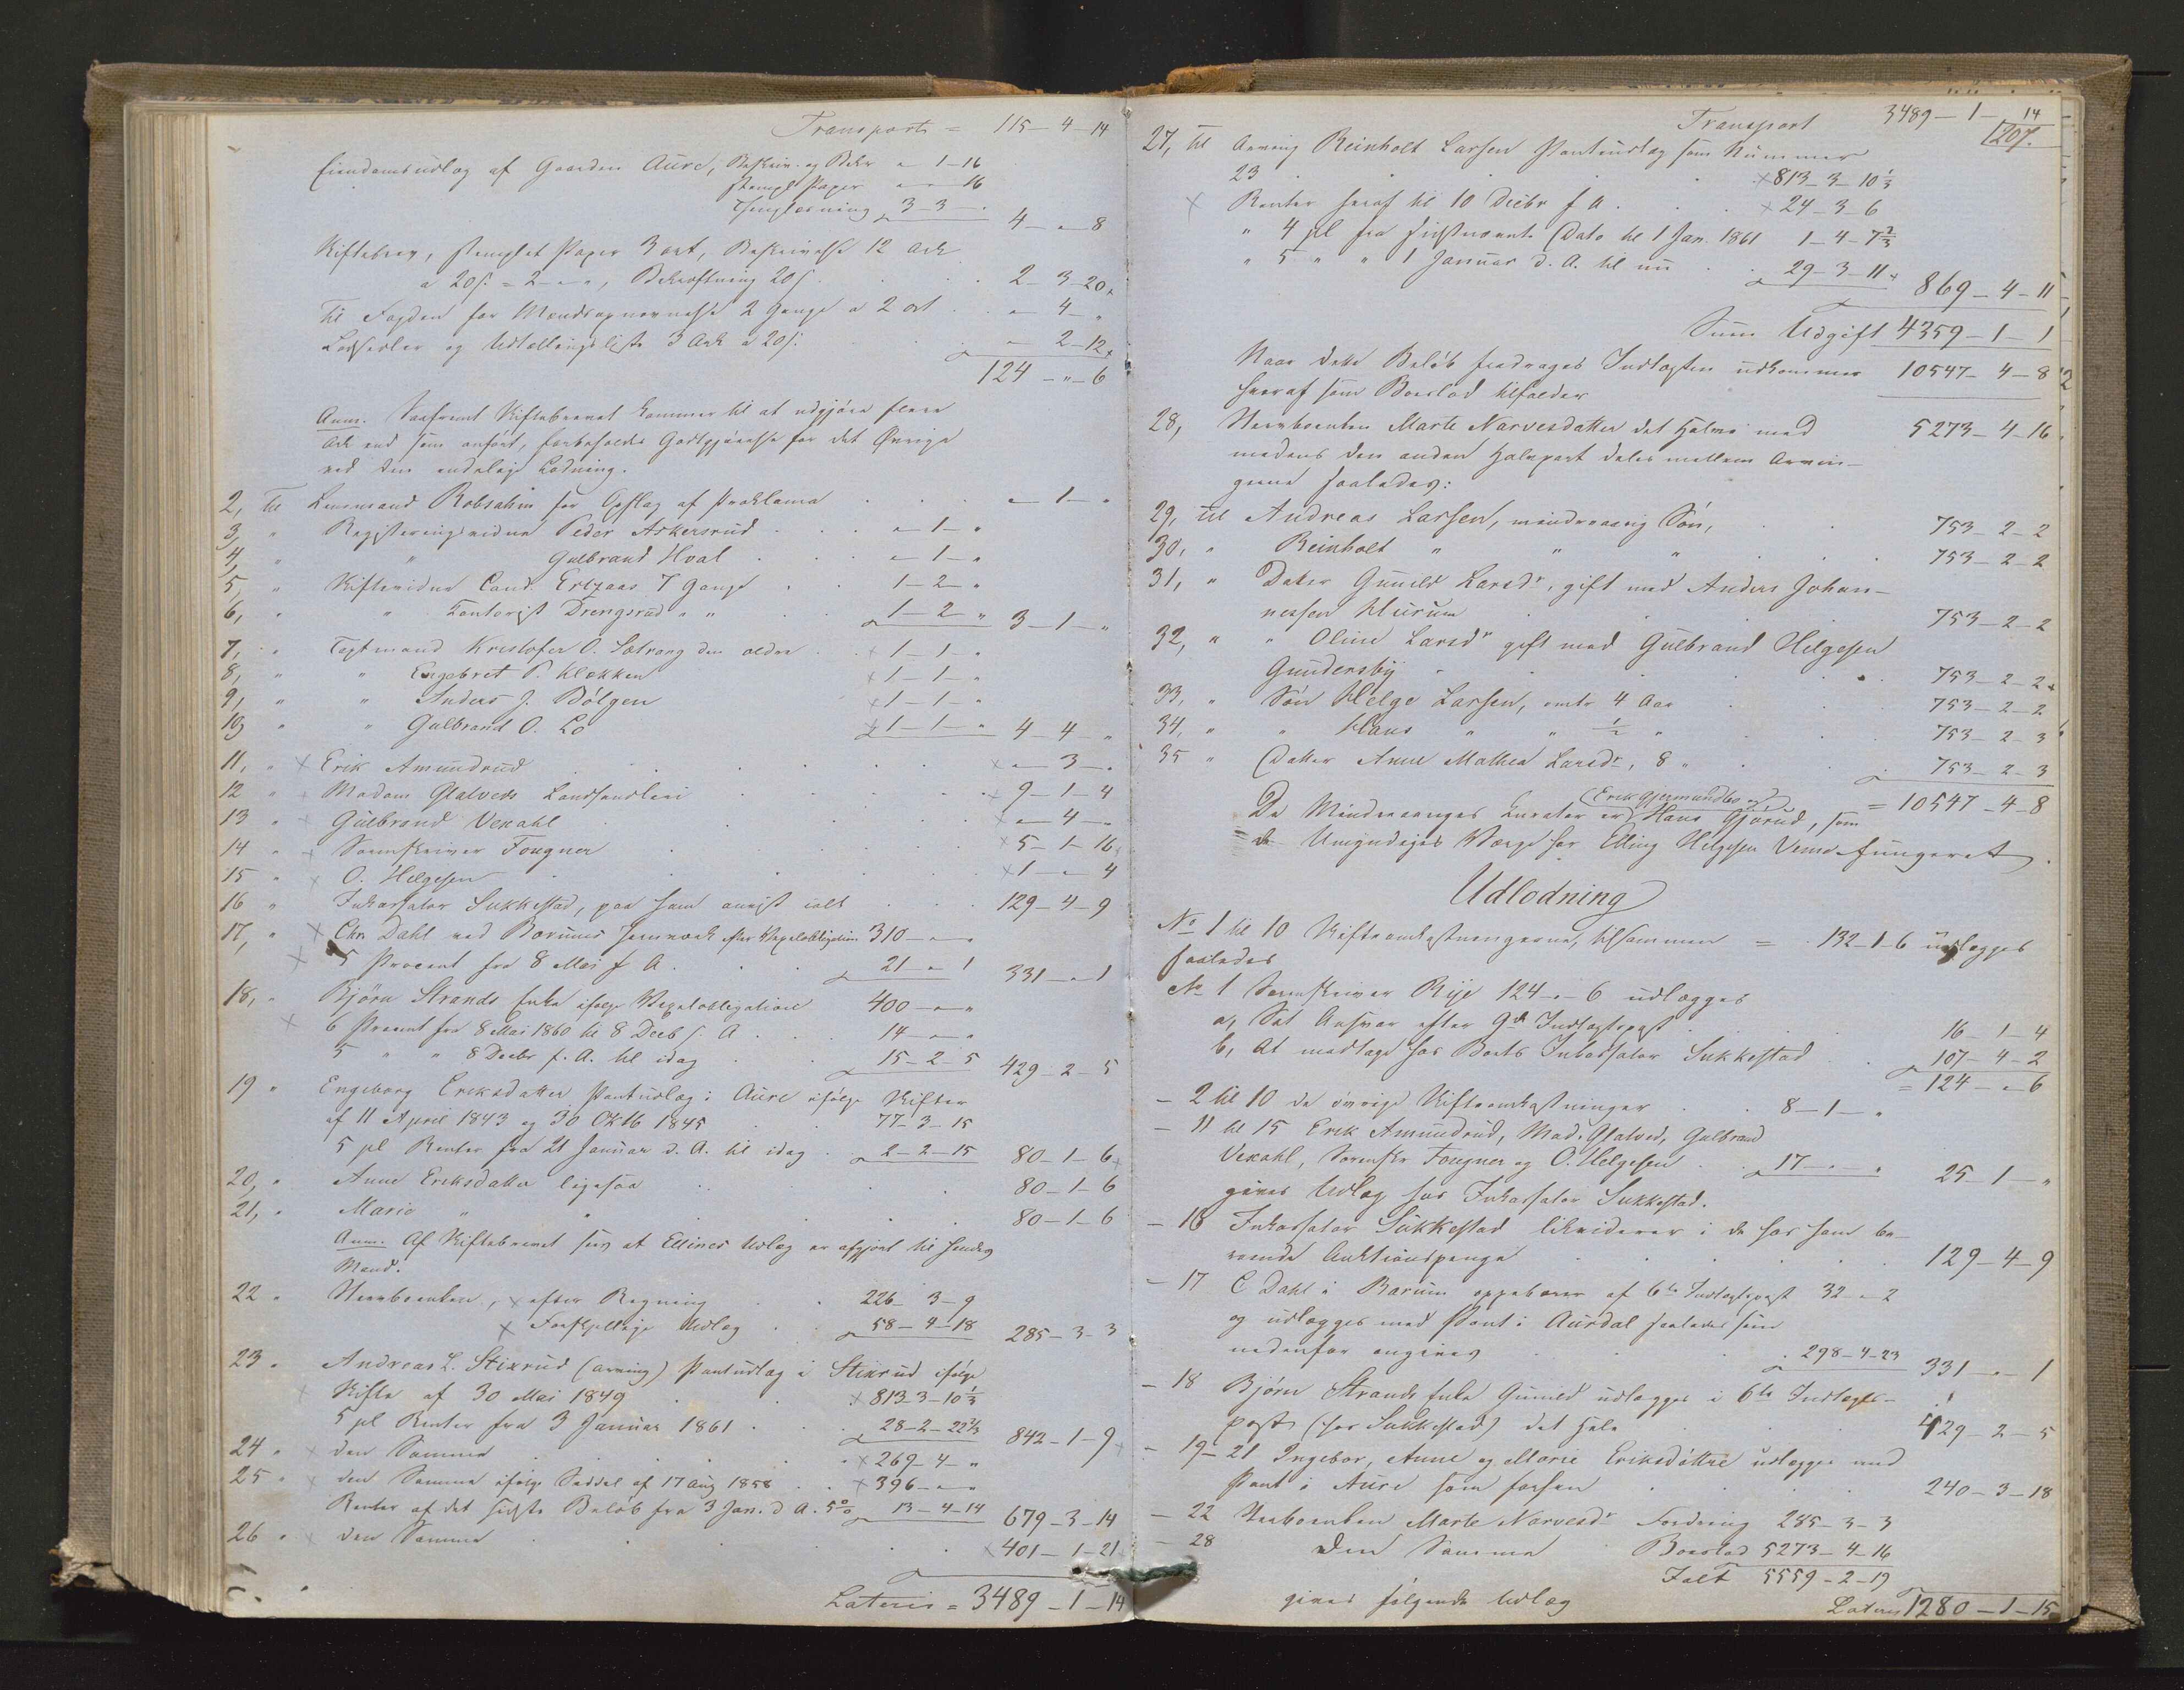 Transport = 115-4-14
Eiendomsudlæg af Gaarden Aure, Beskriv. og Bekr " 1-16
stempl Papir " " 16
Thinglæsning 3-3- " 4-"-8
Skiftebrev, stemplet Papir 3 ort, Beskrivelse 12 Ark
a 20 s. = 2-"-", Bekræftning 20 s. 2-3-20
Til Fogden for Mændsopnævnelse 2 Gange a 2 ort " 4-"
Lodsedler og Udtællingsliste 3 Ark a 20 s. " 2-12
124-"-6
Anm. Saafremt Skiftebrevet kommer til at udgjøre flere
Ark end som anført, forbeholdes Godtgjørelse for det Øvrige
ved den endelige Lodning.
2, Til Lensmand Robsahm for Opslag af Proklama "-1-"
3, " Registreringsvidne Peder Askersrud "-1-"
4, " " Gulbrand Hval "-1-"
5, " Skiftevidne Cand. Ertzaas 7 Gange 1-2-"
6, " " Kontorist Drengsrud " " 1-2-" 3-1-"
7, " Taxtmand Kristofer O. Sætrang den ældre 1-1-"
8, " " Engebret P. Klækken 1-1-"
9, " " Anders J. Bølgen 1-1-"
10, " " Gulbrand O. Lo 1-1-" 4-4-"
11, " Erik Amundrud "-3-"
12 " Madam Glatveds Landhandleri 9-1-4
13 " Gulbrand Vexahl "-4-"
14 " Sorenskriver Fougner 5-1-16
15 " O. Helgesen 1-"-4
16 " Inkassator Sukkestad, paa ham anvist ialt 129-4-9
17, " Chr Dahl ved Bærums Jernværk efter Vexelobligation 310-"-"
5 Procent fra 8 Mai f A. 21-"-1 331-"-1
18, " Bjørn Strands Enke ifølge Vexelobligation 400-"-"
6 Procent fra 8 Mai 1860 til 8 Decb f. A 14-"-"
5 " " 8 Decbr f. A. til idag 15-2-5 429-2-5
19 " Engeborg Eriksdatter Pantudlæg i Aure ifølge Skifter
af 11 April 1843 og 30 Oktb 1845 77-3-15
5 pC Renter fra 21 Januar d. A. til idag 2-2-15 80-1-6
20, " Anne Eriksdatter ligesaa 80-1-6
21, " Marie " " 80-1-6
Anm. Af Skiftebrevet sees at Ellines Udlæg er afgjort til hendes
Mand.
22 " Stervboenken, efter Regning 226-3-9
Forskjellige Udlæg 58-4-18 285-3-3
23 " Andreas L. Stixrud (arving) Pantudlæg i Stixrud ifølge
Skifte af 30 Mai 1849 813-3-10 1/3
5 pC Renter fra 3 Januar 1861 28-2-22 2/3 842-1-9
24 " den Samme 269-4-"
25 " den Samme ifølge Seddel af 17 Aug 1858 396-"-"
Renter af det sidste Beløb fra 3 Jan. d A. 5 % 13-4-14 679-3-14
26 " den Samme 401-1-21
Lateris = 3489-1-14
Transport 3489-1-14
1207.
27, Til Arving Reinholt Larsen Pantudlæg som Nummer
23 813-3-10 1/3
Renter heraf til 10 Decbr f A. 24-3-6
" 4 pC fra sidstnævnte Dato til 1 Jan. 1861 1-4-7 2/3
" 5 " " 1 Januar d. A. til nu 29-3-11 869-4-11
Sum Udgift 4359-1-1
Naar dette Beløb fradrages Indtægten udkommer 10547-4-8
hvoraf som Boeslod tilfalder
28, Stervboenken Marte Narvesdatter det Halve med 5273-4-16
medens den anden Halvpart deles mellem Arvin-
gerne saaledes:
29, til Andreas Larsen, mindreaarig Søn, 753-2-2
30, " Reinholt " " " 753-2-2
31, " Datter Gunild Larsdr, gift med Anders Johan-
nessen Hurum 753-2-2
32, " " Oline Larsdr gift med Gulbrand Helgesen
Gundersby 753-2-2
33, " Søn Helge Larsen, omtr 4 Aar 753-2-2
34, " " Hans " " 1/2 " 753-2-3
35 " Datter Anne Mathea Larsdr, 8 " 753-2-3
= 10547-4-8
De Mindreaariges Kurator er (Erik Gjermundbo og) Hans Gjørud, som
de Umyndiges Værge har Elling Helgesen Veme fungeret.
Udlodning
No 1 til 10 Skifteomkostningerne, tilsammen = 132-1-6 udlægges
saaledes
No 1 Sorenskriver Rye 124-"-6 udlægges
a, Sit Ansvar efter 9de Indtægtspost 16-1-4
b, At modtage hos Boets Inkassator Sukkestad 107-4-2
= 124-"-6
- 2 til 10 de øvrige Skifteomkostninger 8-1-"
- 11 til 15 Erik Amundrud, Mad. Glatved, Gulbrand
Vexahl, Sorenskr Fougner og O. Helgesen 17-"-" 25-1-"
gives Udlæg hos Inkassator Sukkestad.
- 16 Inkassator Sukkestad likviderer i de hos ham be-
roende Auktionspenge 129-4-9
- 17 C Dahl i Bærum oppebærer af 6te Indtægtspost 32-"-2
og udlægges med Pant i Aurdal saaledes som
nedenfor angives 298-4-23 331-"-1
- 18 Bjørn Strands Enke Gunild udlægges i 6te Indtægts-
post (hos Sukkestad) det Hele 429-2-5
- 19-21 Ingebor, Anne og Marie Eriksdøttre udlægges med
Pant i Aure som forhen 240-3-18
- 22 Stervboenken Marte Narvesdr Fordring 285-3-3
- 28 den Samme Boeslod 5273-4-16
Ialt 5559-2-19
gives følgende Udlæg
Lateris 1280-1-15